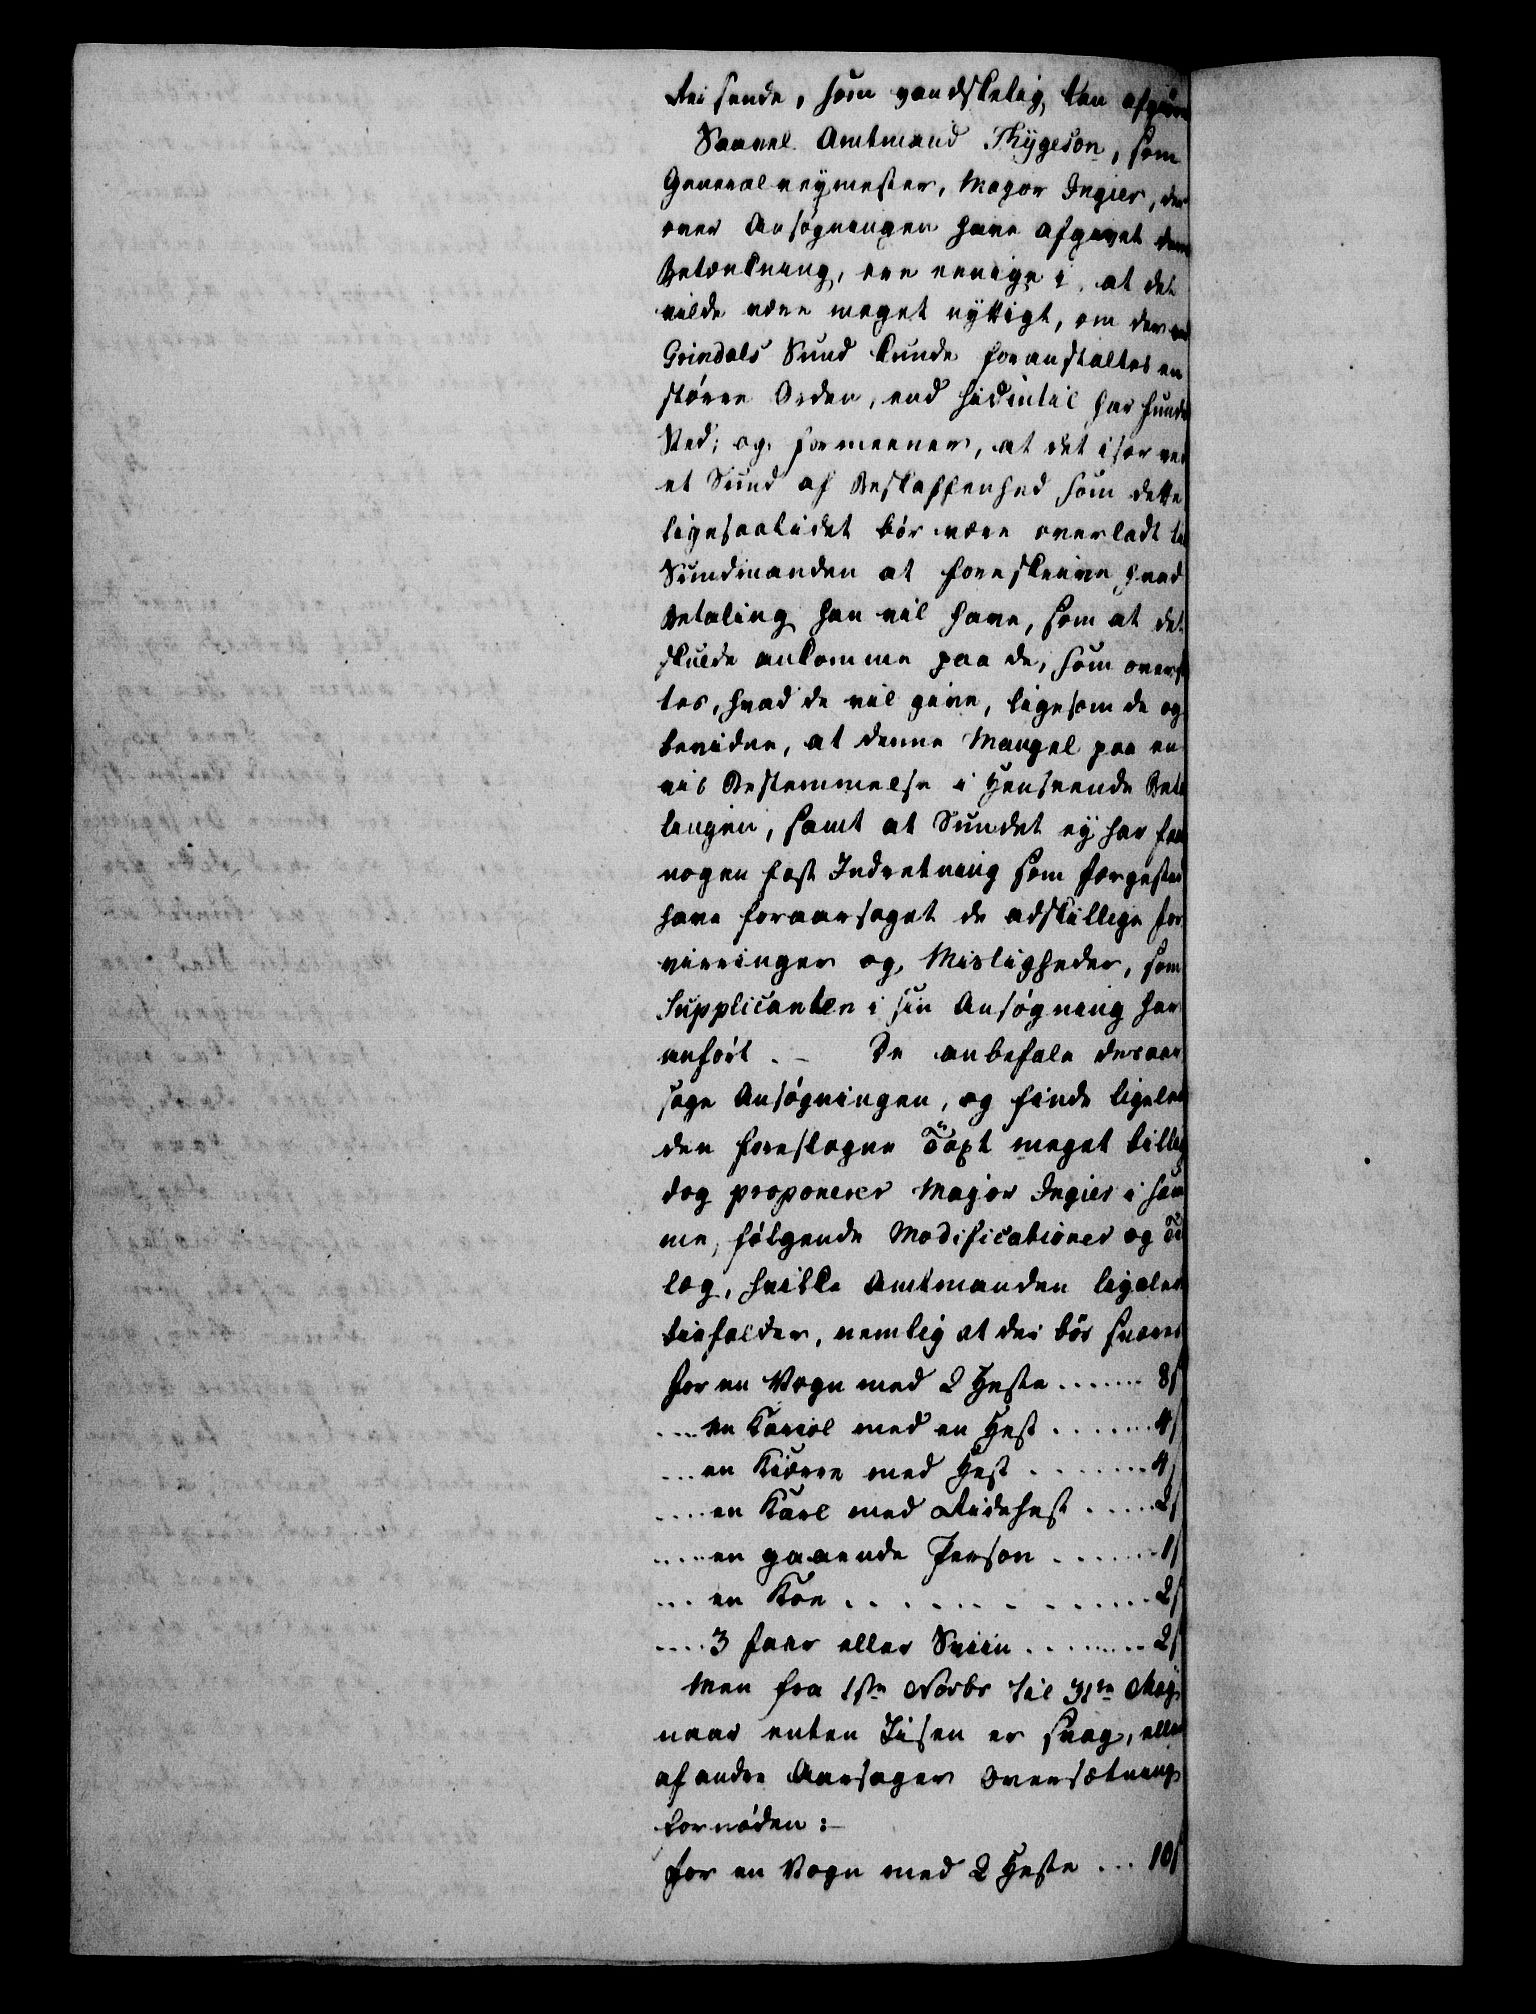 Reisende, som vandskelig kan afgiøre
Saavel Amtmand Thygeson, som
Generalveymester, Major Ingier, der
over Ansøgningen have afgivet deres
Betænkning, ere eenige i, at det
vilde være meget nyttigt, om der ved
Grindals Sund kunde foranstaltes en
større Orden, end hidindtil har fundet
Sted; og formeener, at det især ved
et Sund af Beskaffenhed som dette
ligesaalidet bør være overladt til
Sundmanden at foreskrive hvad
Betaling han vil have, som at det
skulde ankomme paa de, som oversæt
tes, hvad de vil give, ligesom de og
bevidne, at denne Mangel paa en
vis Bestemmelse i Henseende Beta
lingen, samt at Sundet ej har faaet
nogen fast Indretning som Færgested
have foraarsaget de adskillige for
virringer og Misligheder, som
Supplicanten i sin Ansøgning har
anført. – De anbefale desaar
sage Ansøgningen, og finde ligeledes
den foreslagne Taxt meget billig
dog proponerer Major Ingier i sam
me, følgende Modificationer og Til
læg, hvilke Amtmanden ligeledes
bifalder, nemlig at der bør svares
for en Vogn med 2 Heste ....... 8 s
.... en Kariol med en Hest ....... 4 s
... en Kiærre med Hest ....... 4 s
.... en Karl med Ridehest ..... 2 s
..... en gaaende Person ...... 1 s
... en Koe ............ 2 s
.... 3 Faar eller Sviin ........ 2 s
Men fra 1ste Novbr til 31te May
naar enten Iisen er svag, eller
af andre Aarsager Oversætning
fornøden:–
for en Vogn med 2 Heste ... 10 s